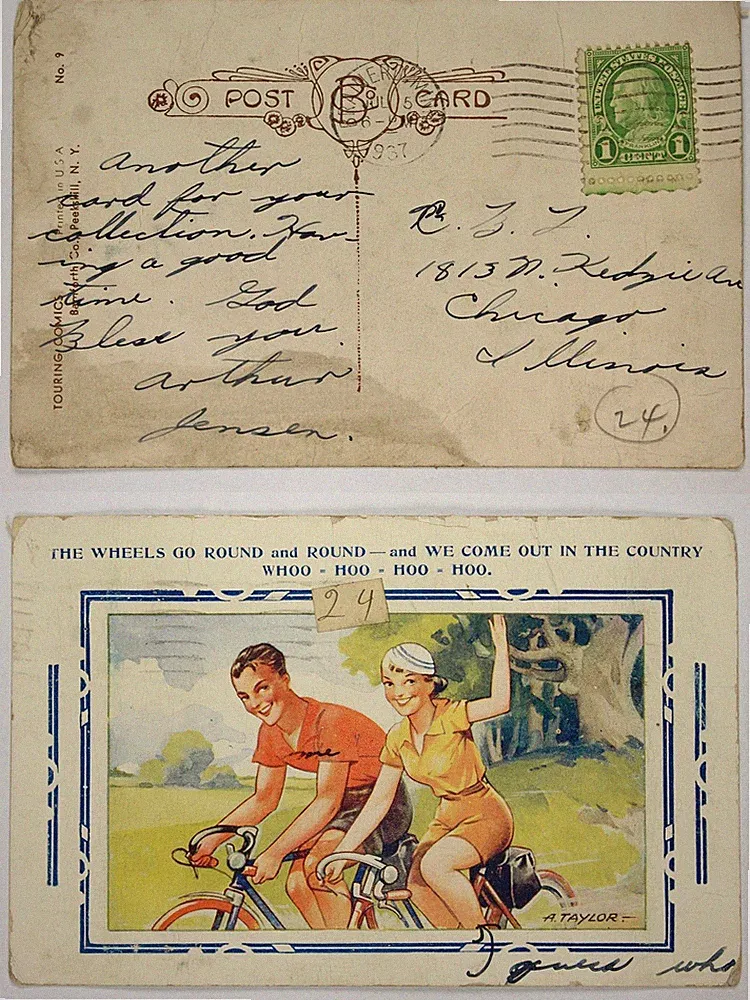 No. 9
Printed in U.S.A
Bamforth Co., Peekskill, N. Y.
TOURING COMICS
POST CARD
JUL 5
6-PM
1937
UNITED STATES POSTAGE
FRANKLIN
1 CENT 1
Another
card for your
collection. Hav-
ing a good
time. God
Bless you.
Arthur
Jensen.
R. L. L.
1813 N. Kedzie Av
Chicago
Illinois
24.
THE WHEELS GO ROUND and ROUND — and WE COME OUT IN THE COUNTRY
WHOO - HOO - HOO - HOO.
24
me
A. TAYLOR-
guess who